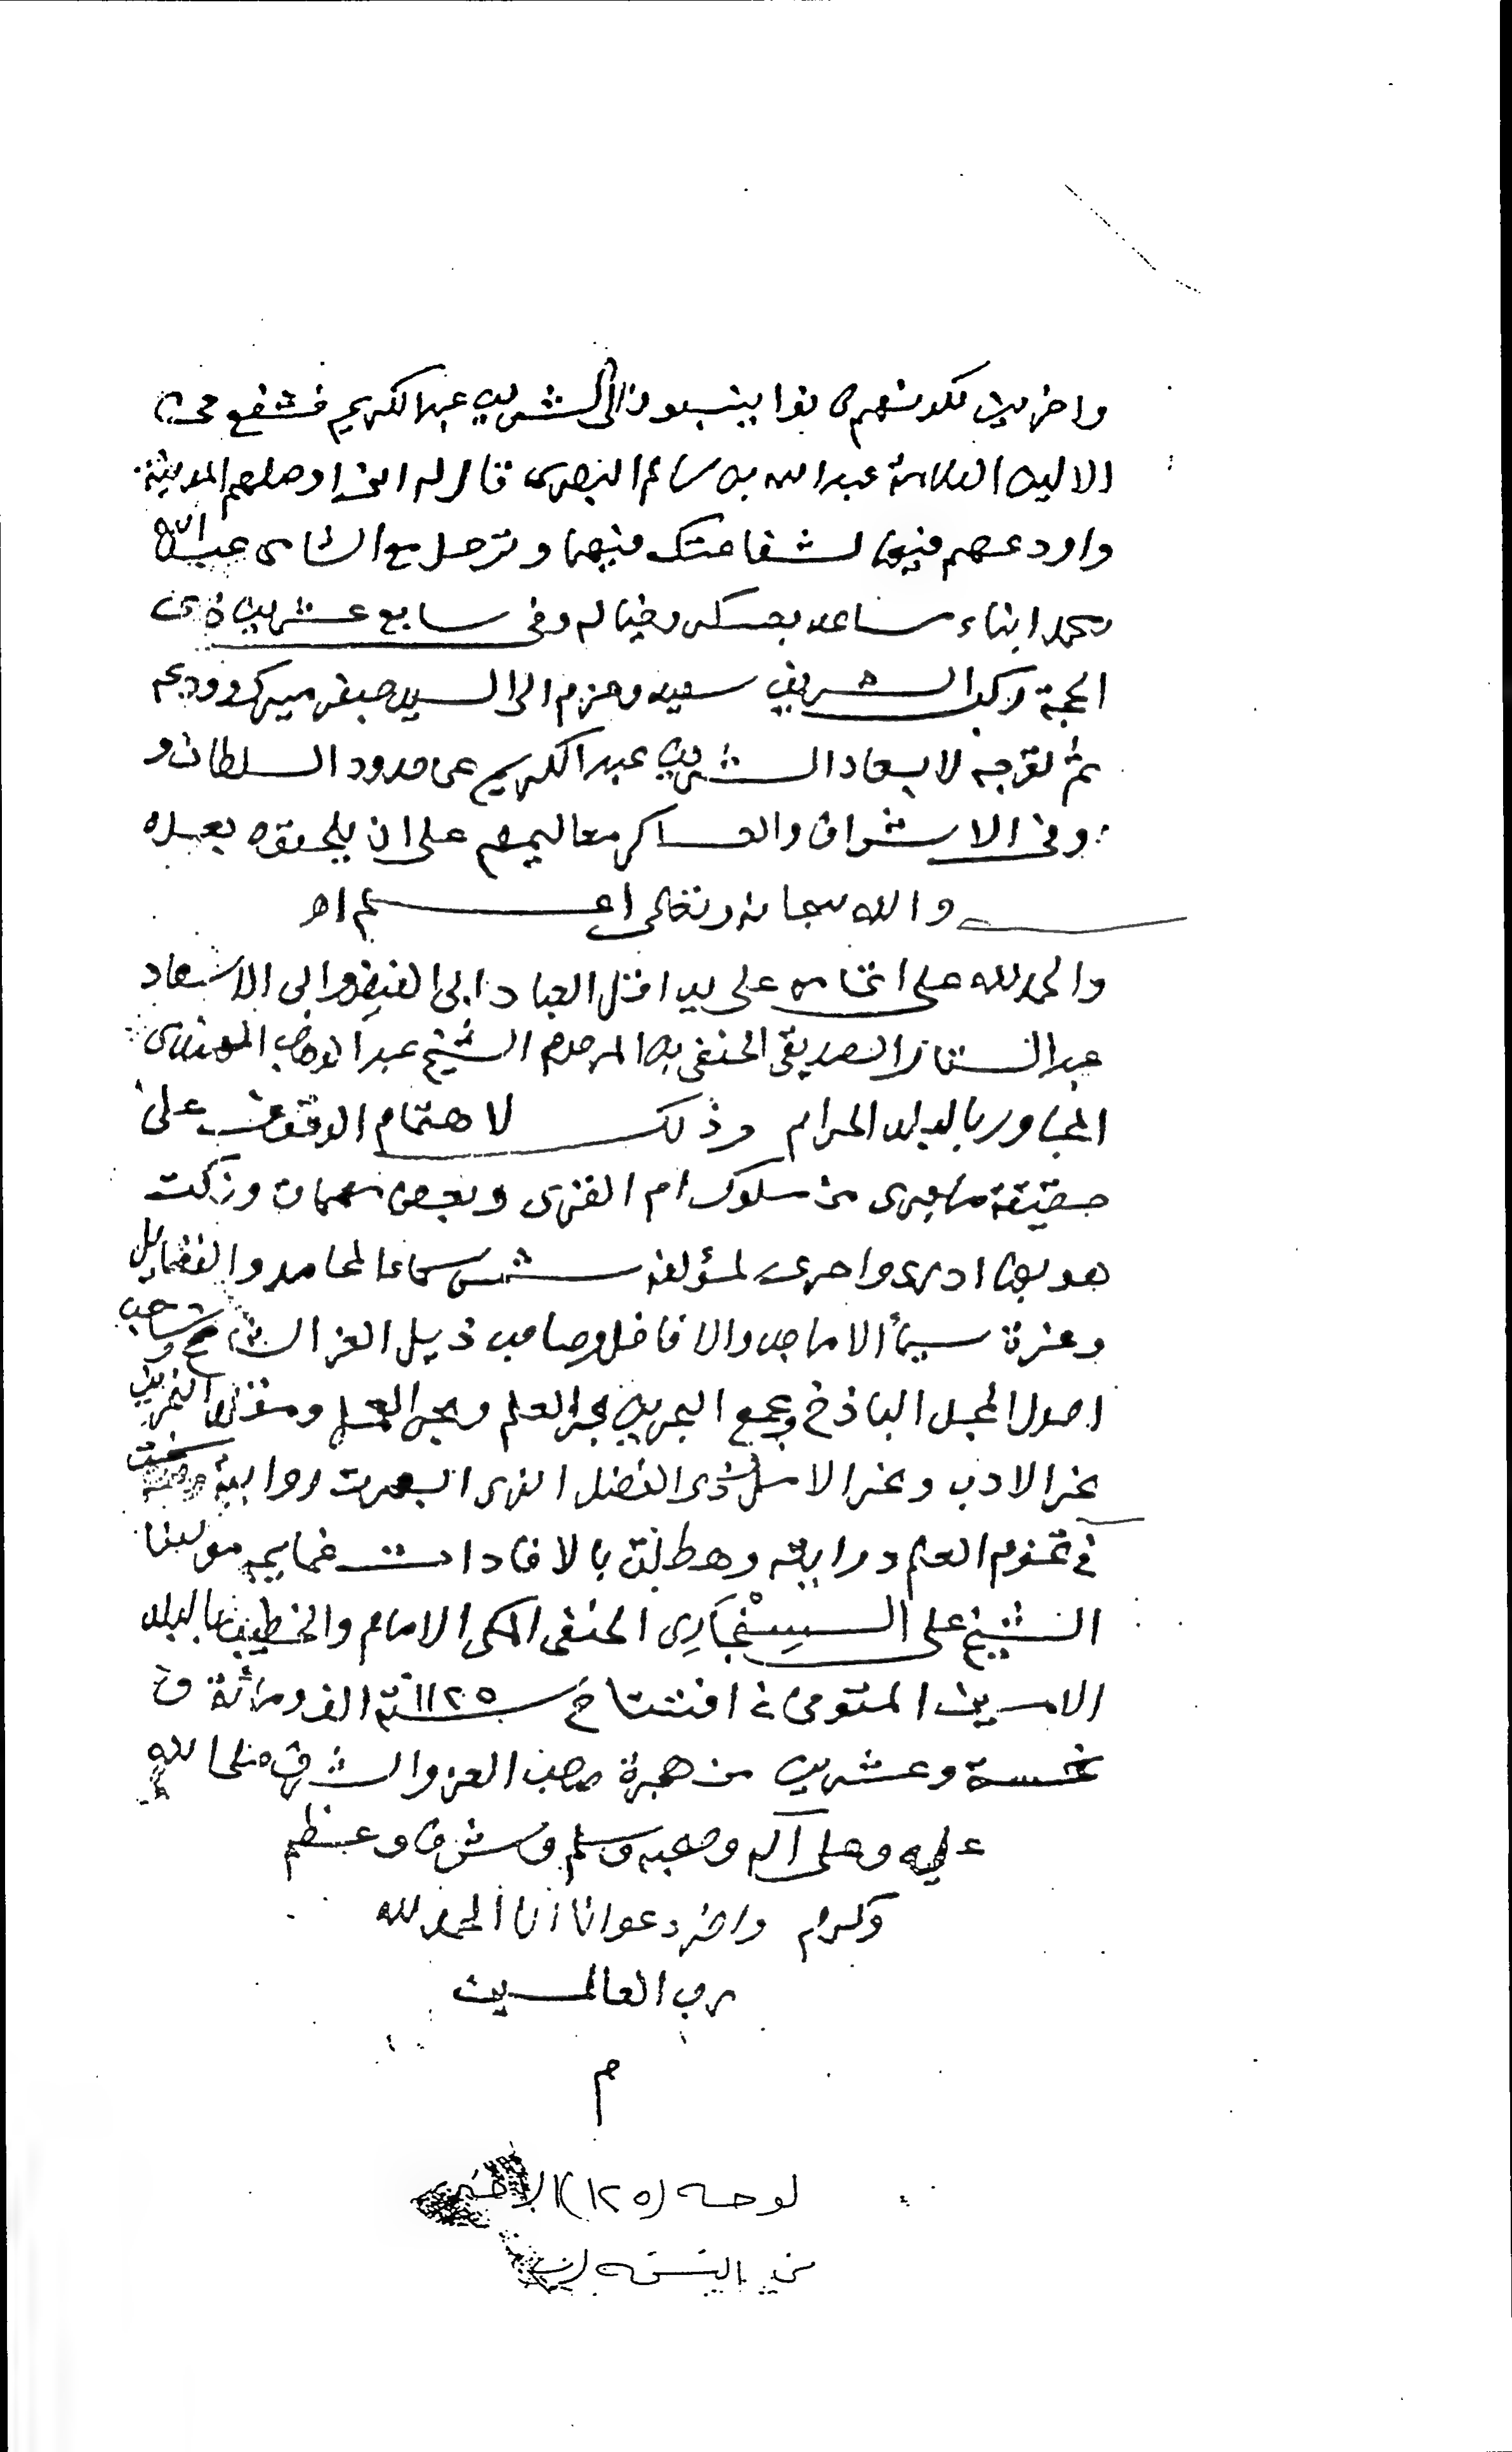 واخرين لكونهم كانوا ينسبون الى الشريف عبد الكريم فشفع في
العلامة عبد الله بن سالم البصرى قال له انى اوصلهم المدينة
واودعهم فيها لشفاعتك فيهما وترحل مع الشامى عبد الله
ومحمد ابناء ساعد بعسكر وخياله وفى سابع عشرين ذى
الحجة ركب الشريف سعيد وعزم الى السيد جعفر ميرك وودعه
ثم توجه لابعاد الشريف عبد الكريم عن حدود السلطان و
وفى الاشراف والعساكر معاليمهم على ان يلحقوه بعده
والله سبحانه وتعالى اعلم اه
والحمد لله على اتمامه على يد اقل العباد ابى الفيض وابى الاسعاد
عبد الستار الصديقى الحنفى بن المرحوم الشيخ عبد الوهاب
المجاور بالبلد الحرام وذلك لاهتمام الوقوف على
حقيقة ما جرى من ملوك ام القرى وبعض مهمات وزكت
هو بها ادرى واحرى لمؤلفه شمس سما المحامد والفضايل
وغرة سيما الاماجد والافاضل وصاحب ذيل العز الشامخ وصاحب
اصول المجد الباذخ ومجمع البحرين بحر العلم وبحر العمل ومنزل
عز الادب وعز الاسل ذى الفضل الذى
فى تخوم العلم درايته وهطلت بالافادات غمايمه مولينا
الشيخ على السِنْجَارِى الحنفى المكى الامام والخطيب بالبلد
الامين المتوفى فى افتتاح سنة ١١٢٥ الف ومائة و
خمسة وعشرين من هجرة من له العز والشرف صلى الله
عليه وعلى آله وصحبه وسلم وشرف وعظم
وكرم واخر دعوانا ان الحمد لله
رب العالمين
م
لوحه (١٢٥) الاخيره
من النسخه